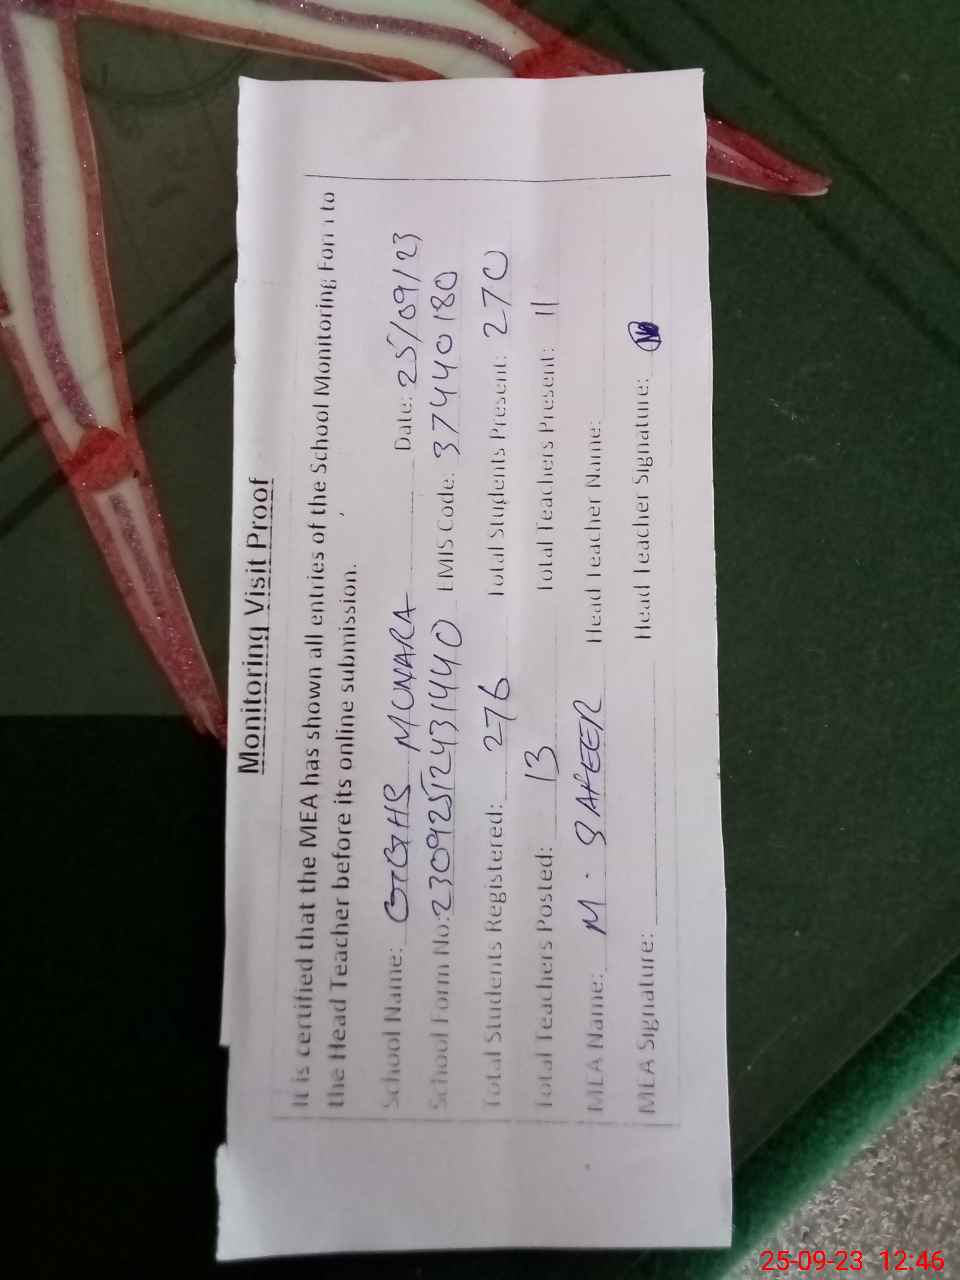 Monitoring Visit Proof
It is certified that the MEA has shown all entries of the School Monitoring Form to
the Head Teacher before its online submission.
School Name: GGHS MUNARA Date: 25/09/23
School Form No: 23092512431440 EMIS Code: 37440180
Total Students Registered: 276 Total Students Present: 270
Total Teachers Posted: 13 Total Teachers Present: 11
MEA Name: M. SAHEER Head Teacher Name:
MEA Signature: Head Teacher Signature:
25-09-23 12:46